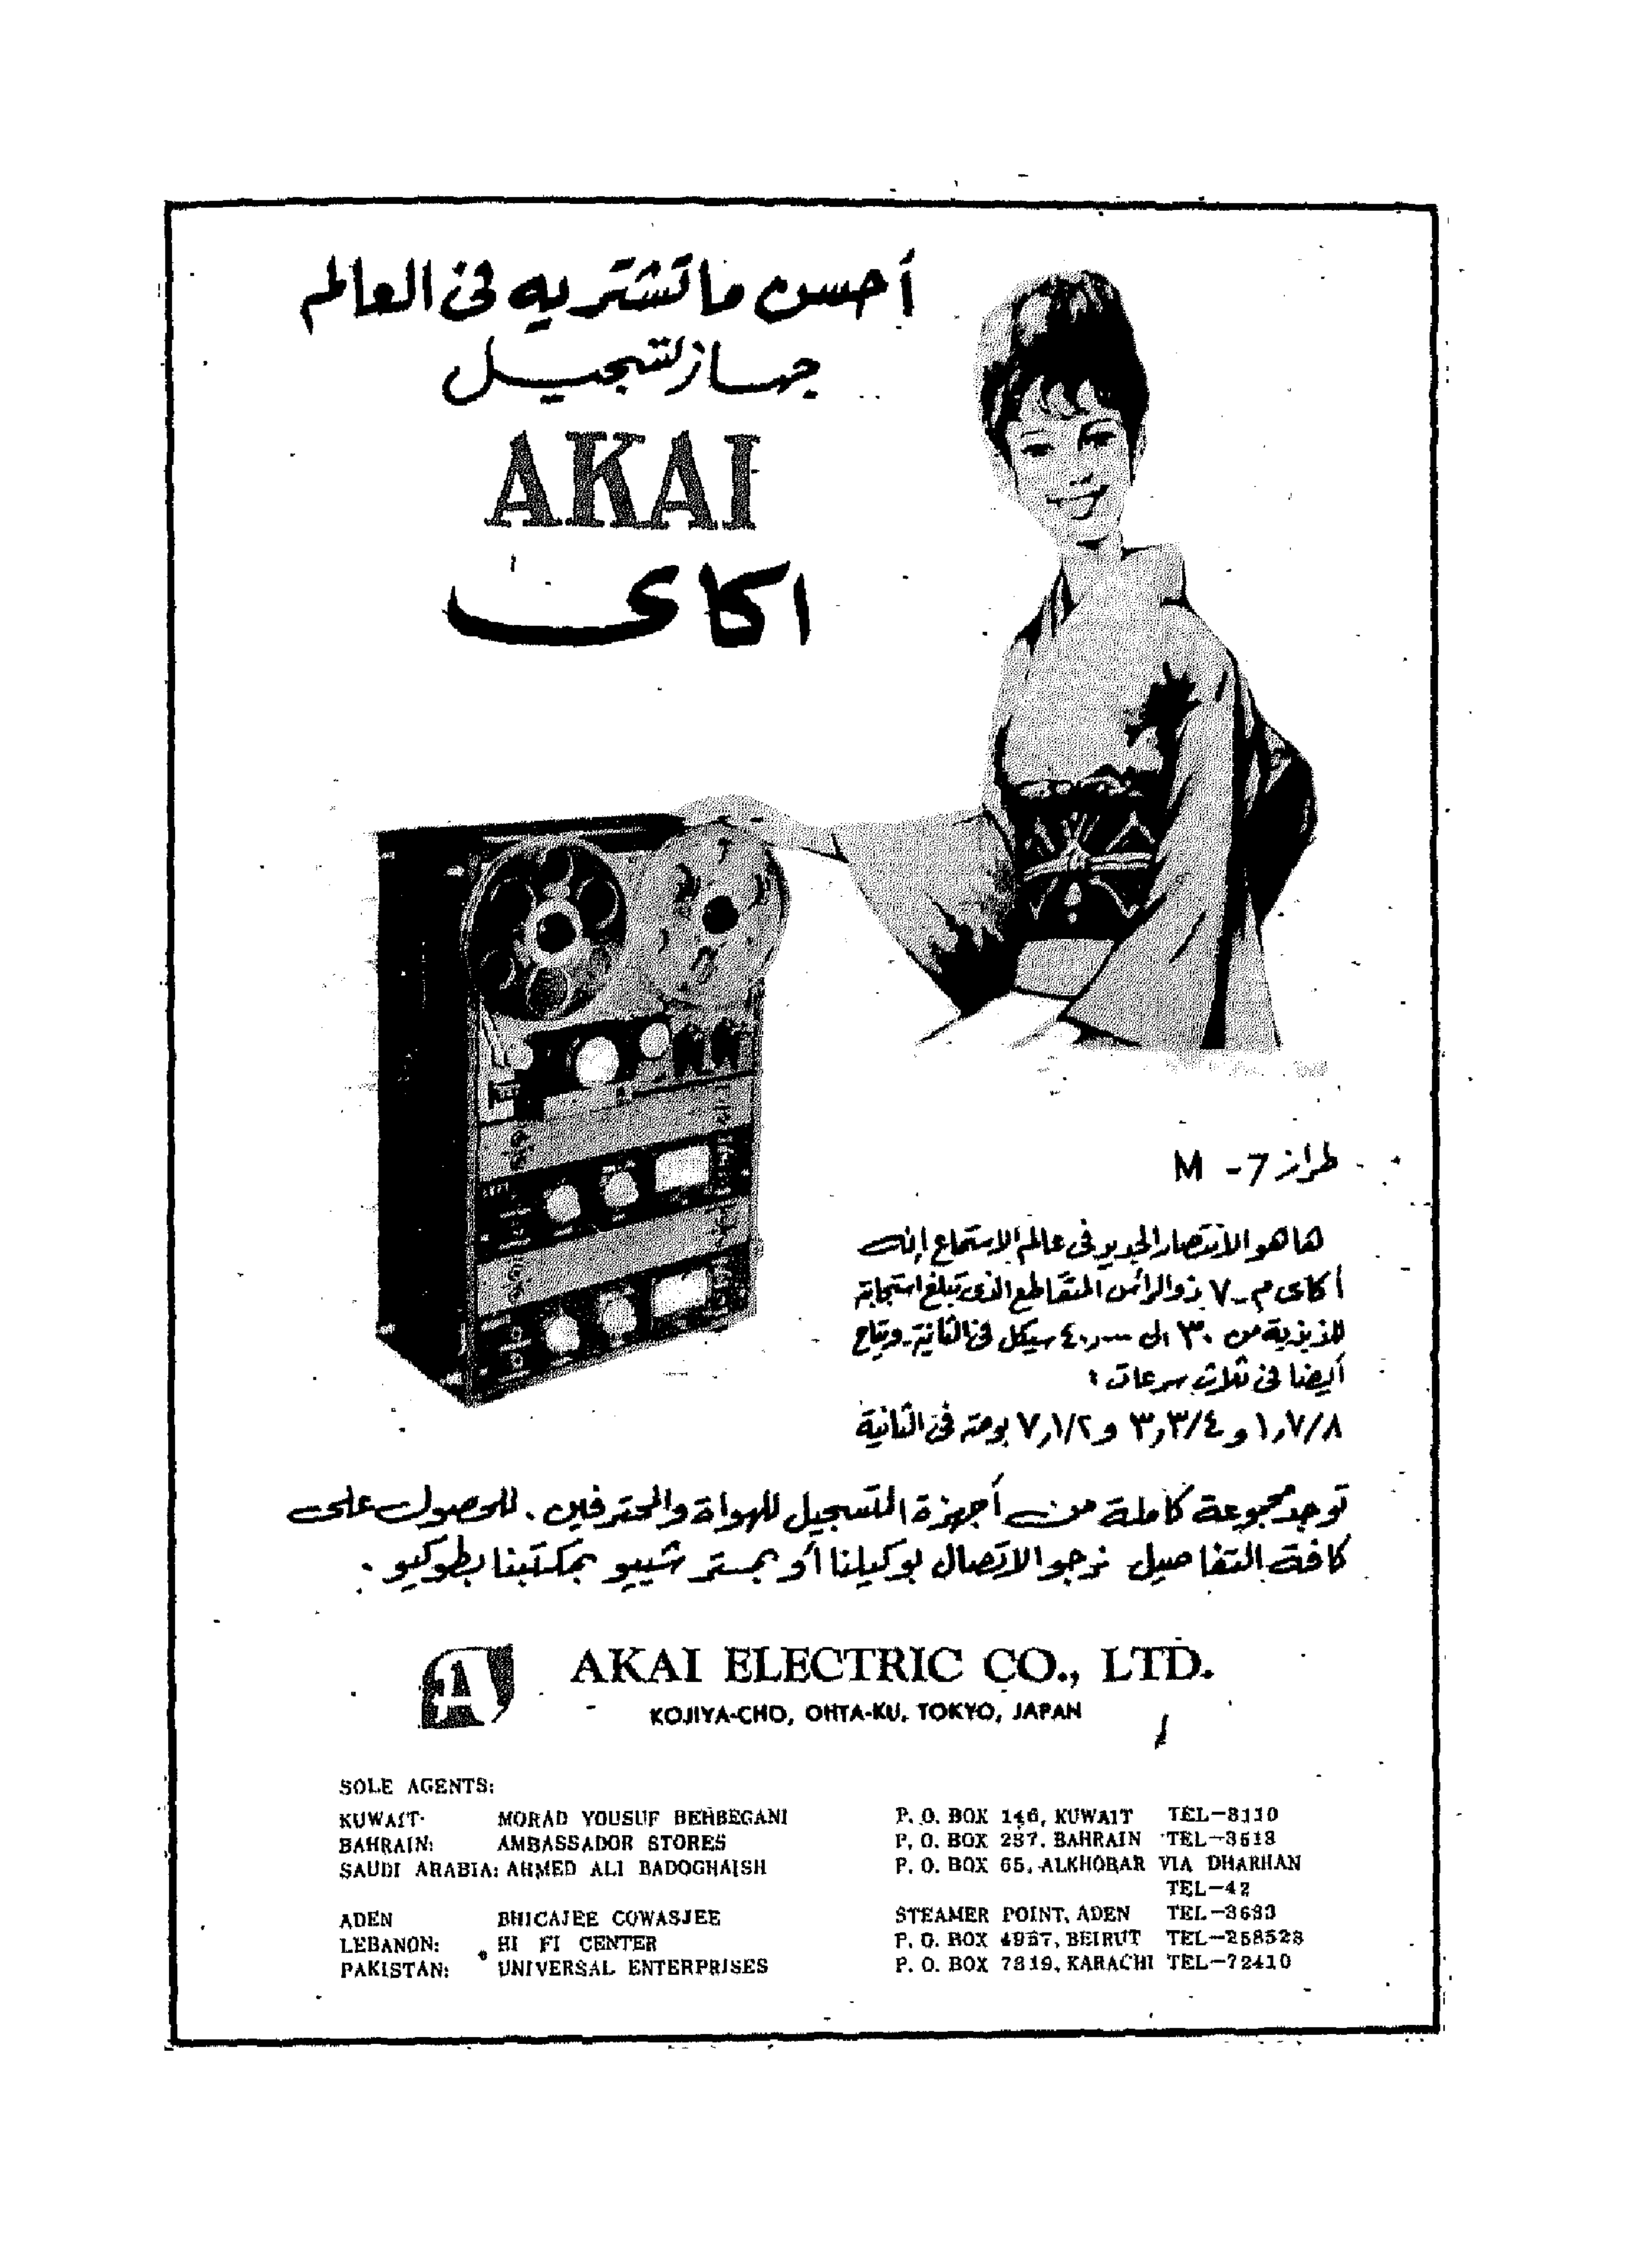 أحسن ما تشتريه فى العالم
جهاز لتسجيل
AKAI
اكاى
طراز M - 7
ها هو الانتصار الجديد فى عالم الاستماع إنه
أكاى م-٧ ذو الرأس المتقاطع الذى تبلغ استجابة
للذبذبة من ٣٠ الى سيكل فى الثانية ويتاح
أيضا فى ثلاث سرعات :
١٫٧/٨ و ٣٫٣/٤ و ٧٫١/٢ بوصة فى الثانية
توجد مجموعة كاملة من أجهزة التسجيل للهواة والمحترفين. للحصول على
كافة التفاصيل نرجو الاتصال بوكيلنا أو بمستر شييو بمكتبنا بطوكيو .
A AKAI ELECTRIC CO., LTD.
KOJIYA-CHO, OHTA-KU, TOKYO, JAPAN
SOLE AGENTS:
KUWAIT: MORAD YOUSUF BEHBEGANI P. O. BOX 146, KUWAIT TEL-3110
BAHRAIN: AMBASSADOR STORES P. O. BOX 287, BAHRAIN TEL-3513
SAUDI ARABIA: AHMED ALI BADOGHAISH P. O. BOX 65, ALKHOBAR VIA DHARHAN
TEL-42
ADEN BHICAJEE COWASJEE STEAMER POINT, ADEN
LEBANON: HI FI CENTER P. O. BOX BEIRUT TEL-258523
PAKISTAN: UNIVERSAL ENTERPRISES P. O. BOX 7319, KARACHI TEL-72410